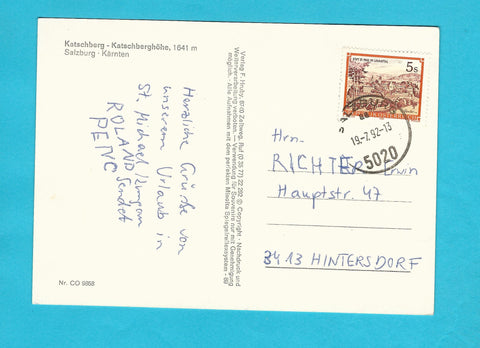 Katschberg - Katschberghöhe, 1641 m
Salzburg · Kärnten
Herzliche Grüße von
unserem Urlaub in
St. Michael/Lungau
sendet
ROLAND
PENC
Nr. CO 9868
Verlag F. Hruby, 8740 Zeltweg, Ruf (0 35 77) 22 292 © Copyright - Nachdruck und
Weiterverarbeitung verboten. — Verwendung für Souvenire nur mit Genehmigung
möglich. - Alle Aufnahmen mit dem perfekten Minolta Spiegelreflexsystem - 89
5s
19.-2.92-13
5020
Hrn.
RICHTER Erwin
Hauptstr. 47
3413 HINTERSDORF